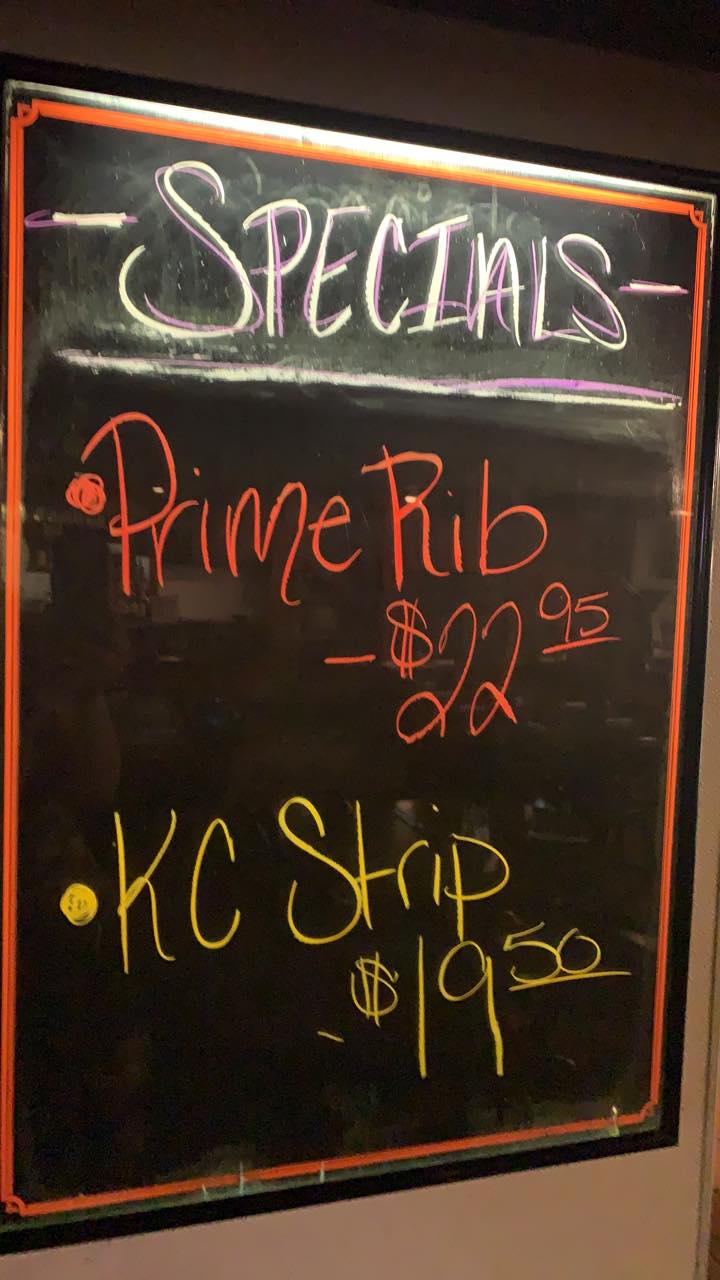 -SPECIALS-
• Prime Rib
- $22 95
• KC Strip
- $19 50